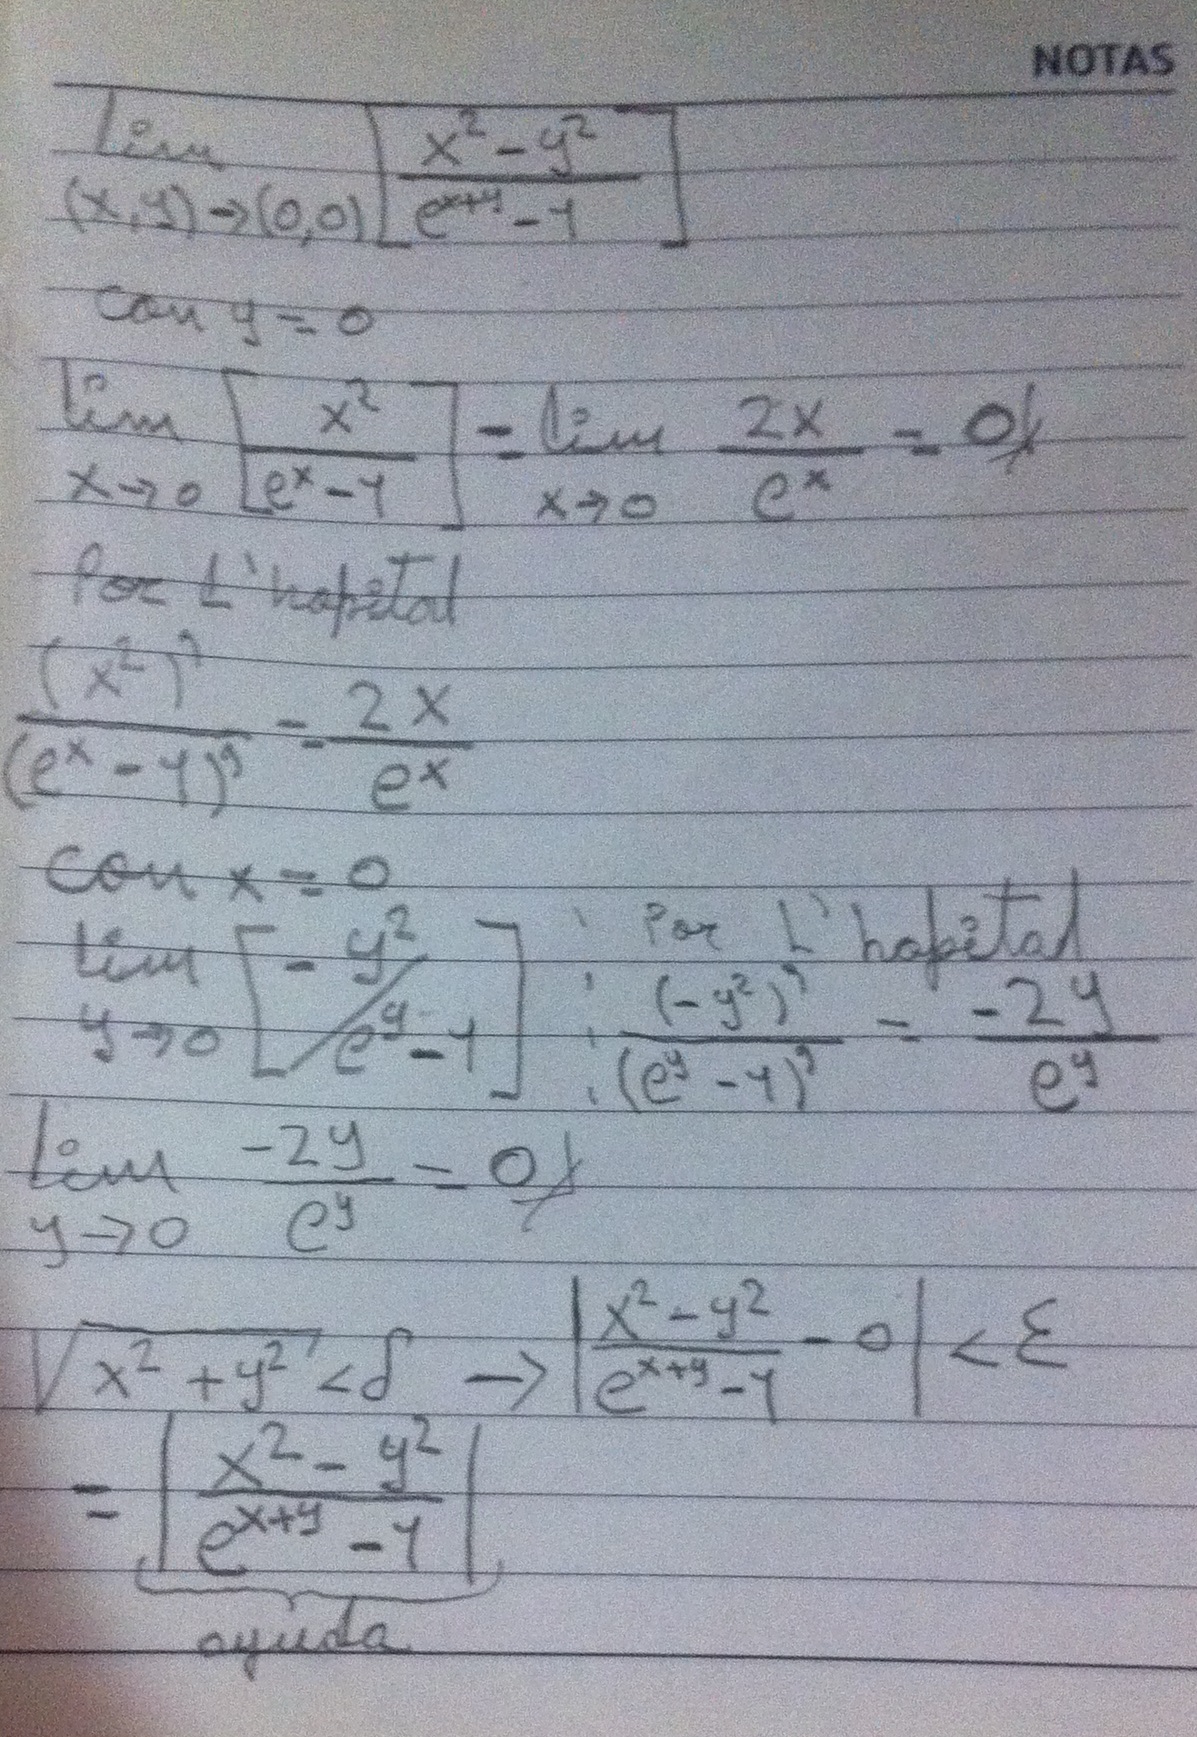 NOTAS
lim (x,y)→(0,0) [ (x² - y²) / (e^(x+y) - 1) ]
con y = 0
lim x→0 [ x² / (e^x - 1) ] = lim x→0 2x / e^x = 0
Por L'hopital
(x²)' / (e^x - 1)' = 2x / e^x
con x = 0
lim y→0 [ - y² / e^y - 1 ] Por L'hopital (-y²)' / (e^y - 1)' = -2y / e^y
lim y→0 -2y / e^y = 0
√(x² + y²) < δ → | (x² - y²) / (e^(x+y) - 1) - 0 | < ε
= | (x² - y²) / (e^(x+y) - 1) |
ayuda